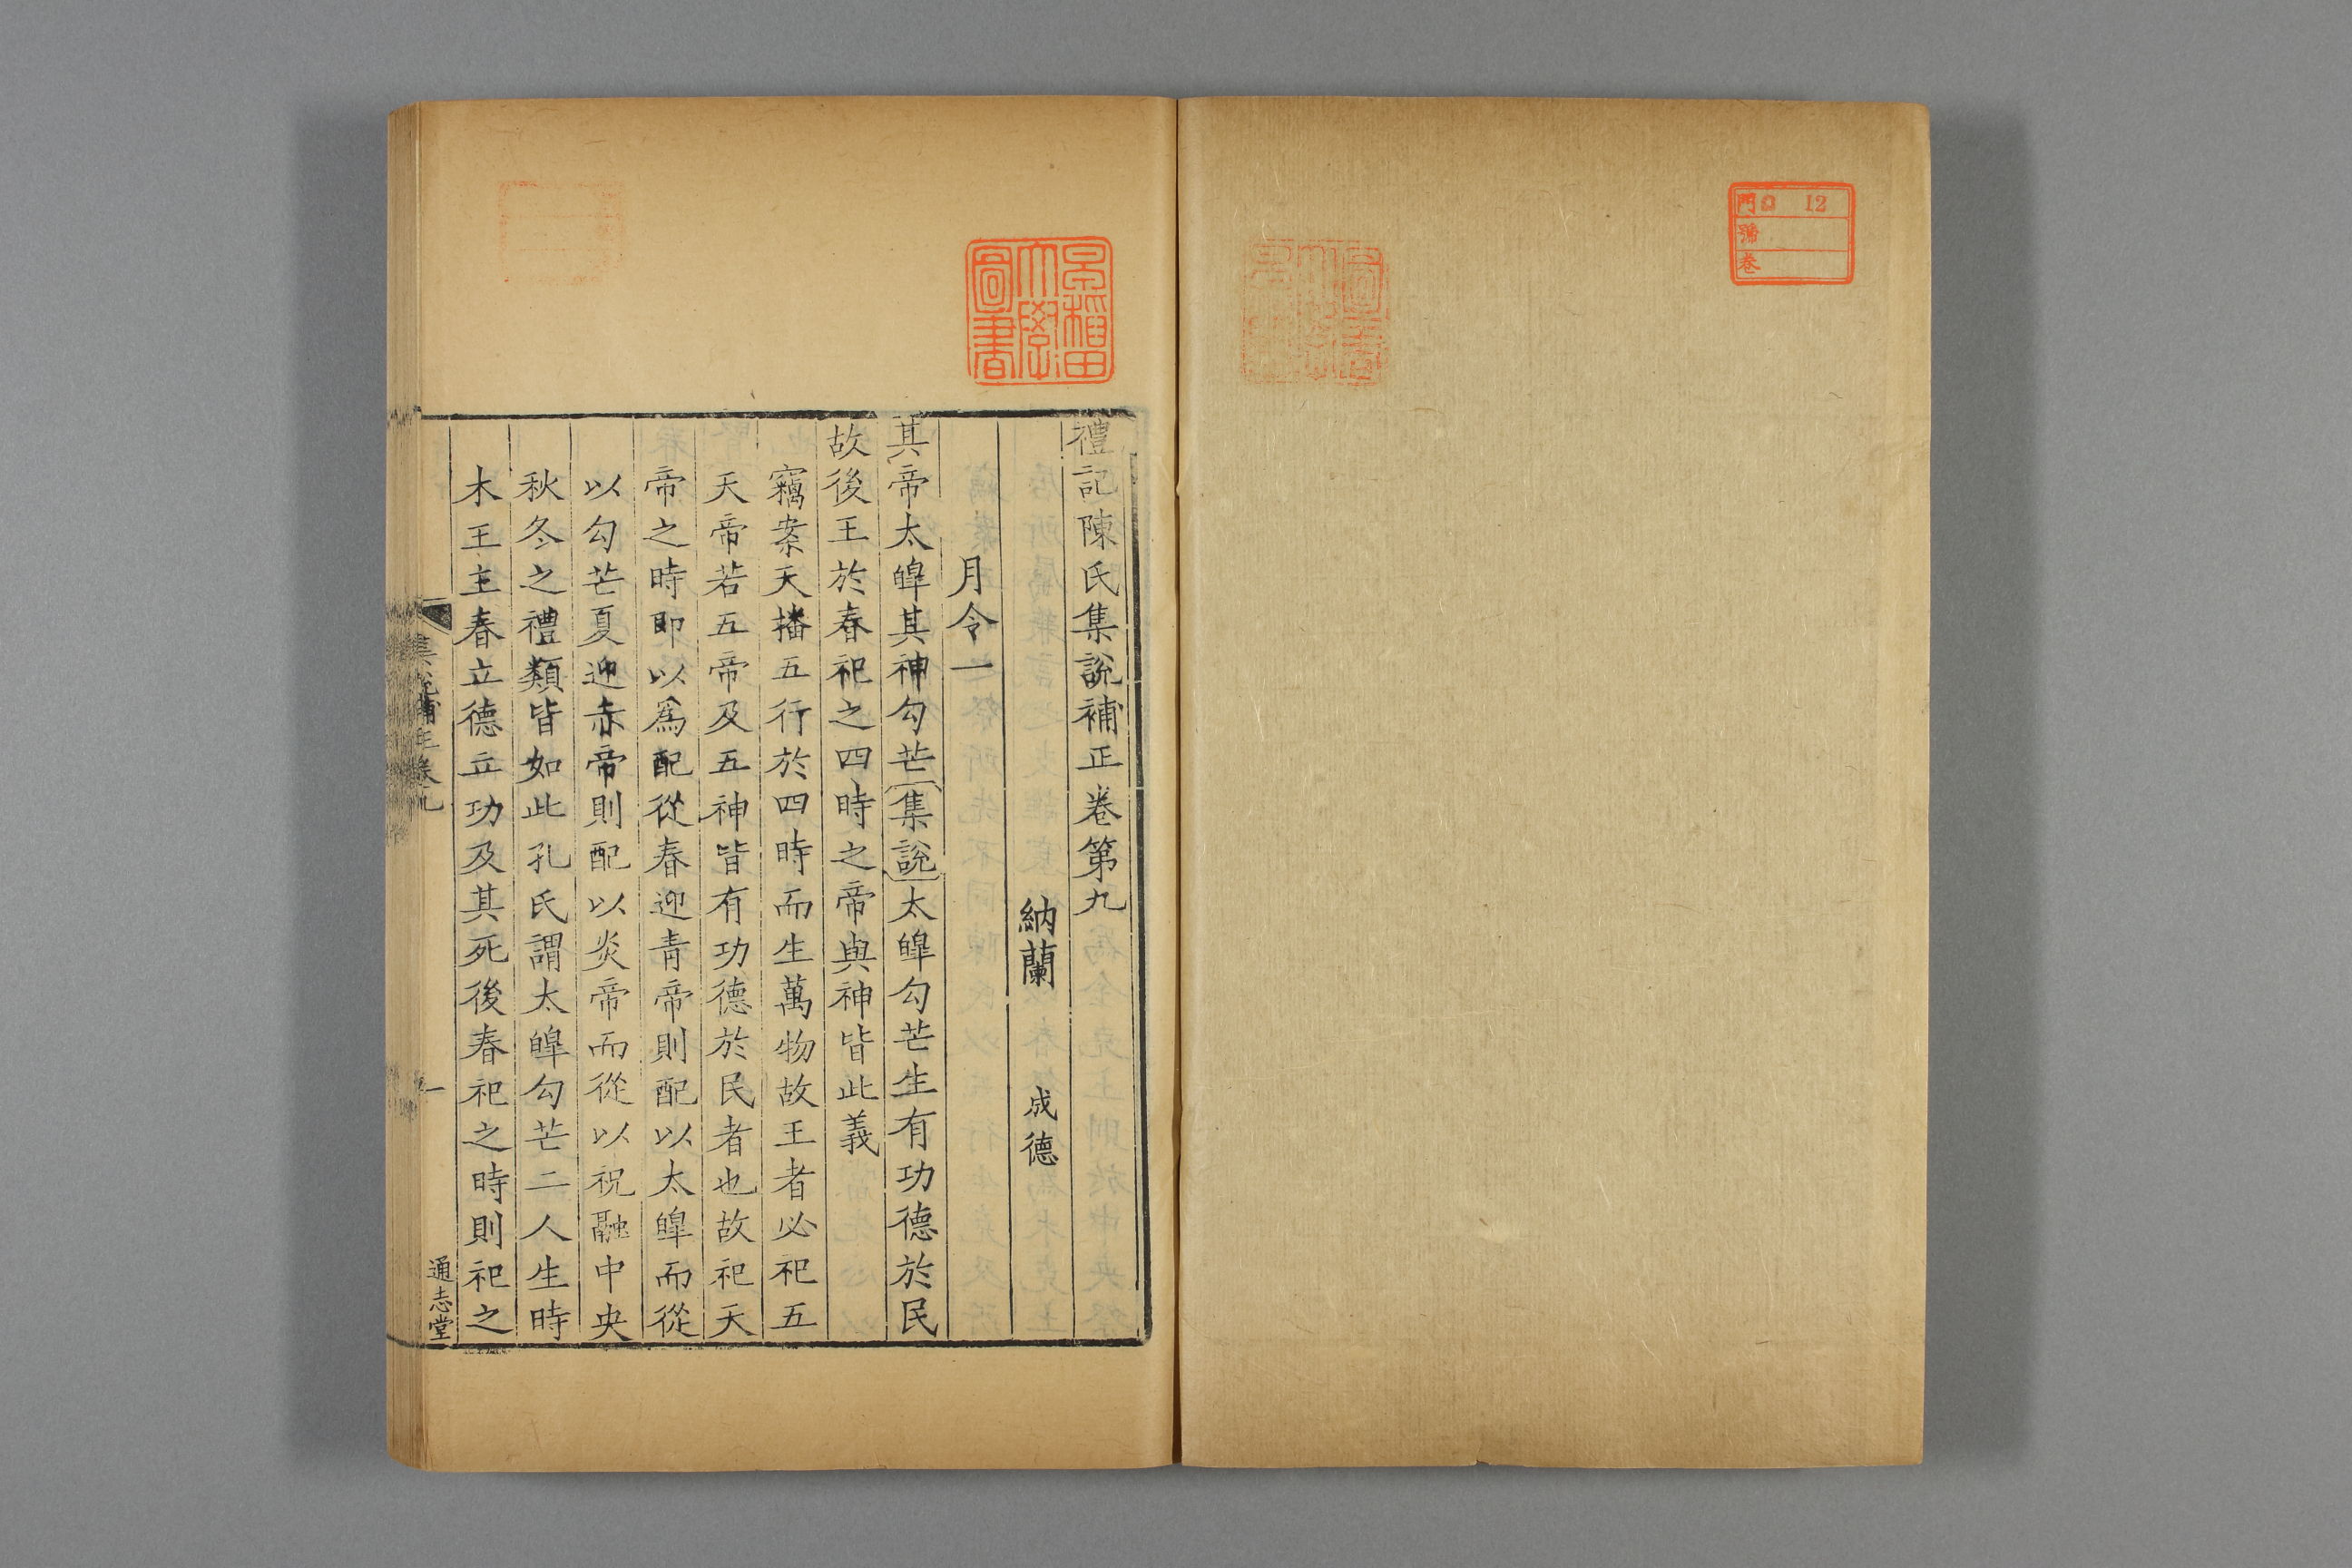 門口 12
號
卷
早稻田
大學
圖書
禮記陳氏集說補正卷第九
納蘭 成德
月令一
其帝太皡其神勾芒〔集說〕太皡勾芒生有功德於民
故後王於春祀之四時之帝與神皆此義
竊案天播五行於四時而生萬物故王者必祀五
天帝若五帝及五神皆有功德於民者也故祀天
帝之時卽以爲配從春迎青帝則配以太皡而從
以勾芒夏迎赤帝則配以炎帝而從以祝融中央
秋冬之禮類皆如此孔氏謂太皡勾芒二人生時
木王主春立德立功及其死後春祀之時則祀之
集說補正卷九 一 通志堂